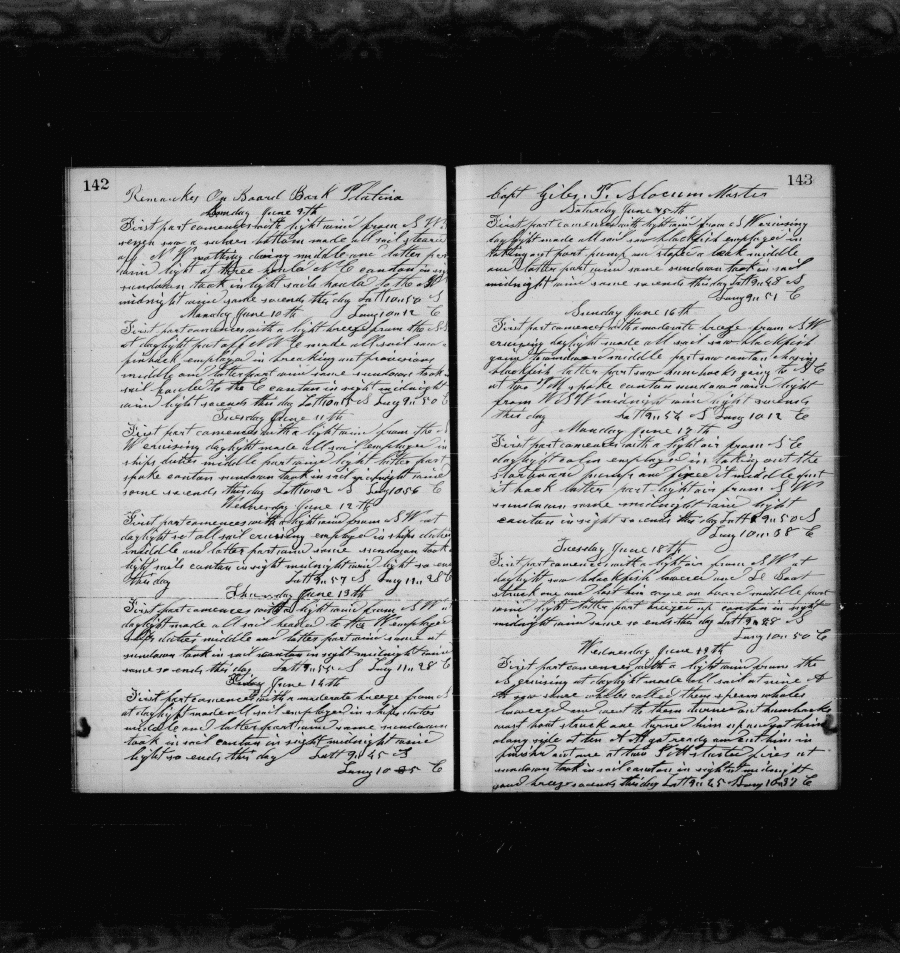 142
Remarks On Board Bark Platina
Sunday June 9th
First part comences with light wind from S W
saw a sulver bottom made all sail steared
off N W nothing doing middle and latter part
wind light at three hauld N E canton in sight
sundown took in light sails hauld to the
midnight wind same so ends this day Latt 10 11 50 S
Monday June 10th Long 10 12 E
First part comences with a light breeze from the S
at daylight put off N W made all sail saw a
finback employed in breaking out provisions
middle and latter part wind same sundown took in
sail hauled to the E canton in sight midnight
wind light so ends this day Latt S Long 9 11 50 E
Tuesday June 11th
First part comences with a light wind from the S
W cruising daylight made all sail employed in
ships duties middle part wind light latter part
spoke canton sundown took in sail midnight wind
same so ends this day Latt 10 11 02 S Long 10 56 E
Wednesday June 12th
First part comences with a light wind from S W at
daylight set all sail cruising employed in ships duties
middle and latter part wind same sundown took in
light sails canton in sight midnight wind light so ends
this day Latt 9 11 57 S Long 11 11 28 E
Thursday June 13th
First part comences with a light wind from S W at
daylight made all sail headed to the W employed
ships duties middle and latter part wind same at
sundown took in sail canton in sight midnight wind
same so ends this day Latt 9 11 55 S Long 11 11 28 E
Friday June 14th
First part comences with a moderate breeze from S
at daylight made all sail employed in ships duties
middle and latter part wind same sundown
took in sail canton in sight midnight wind
light so ends this day Latt 9 11 45 S
Long 10 35 E
143
Capt Gibs. T. Slocum Master
Saturday June 15th
First part comences with light wind from S W cruising
daylight made all sail saw blackfish employed in
taking out port pump and stoped a leak middle
and latter part wind same sundown took in sail
midnight wind same so ends this day Latt 9 11 48 S
Long 9 11 51 E
Sunday June 16th
First part comences with moderate breeze from S W
cruising daylight made all sail saw blackfish
going to windward middle part saw canton chasing
blackfish latter part saw humbacks going to S E
at two P M spoke canton sundown wind light
from W S W midnight wind light so ends
this day Latt 9 11 56 S Long 10 12 E
Monday June 17th
First part comences with a light air from S E
daylight calm employed in taking out the
starboard pump and fixed it middle put
it back latter part light air from S W
sundown same midnight wind light
canton in sight so ends this day Latt 9 11 50 S
Long 10 11 38 E
Tuesday June 18th
First part comences with a light air from S W at
daylight saw blackfish lowered and Boat
struck one and lost him came on board middle part
wind light latter part breezed up canton in sight
midnight wind same so ends this day Latt 9 11 28 S
Long 10 11 50 E
Wednesday June 19th
First part comences with a light wind from the
S cruising at daylight made all sail at nine A
M saw whales called them sperm whales
lowered and went to them turned out humbacks
waist boat struck and turned him up and got him
along side at ten A M got ready and cut him in
finishing cutting at two P M started fires at
sundown took in sail canton in sight at midnight
good breeze so ends this day Latt 9 11 25 S Long 10 11 37 E